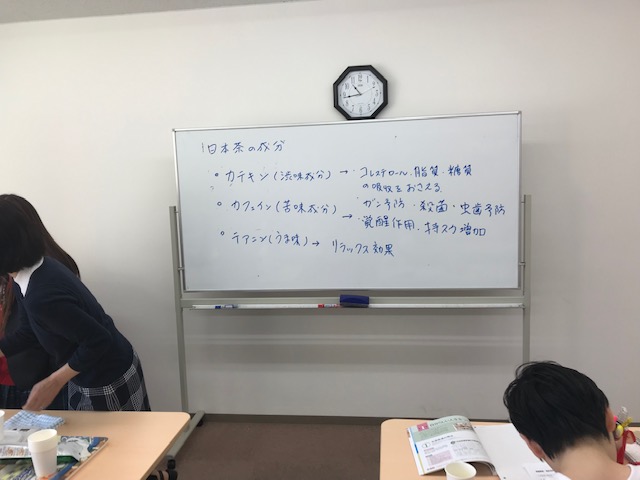 日本茶の成分
○ カテキン(渋味成分) → ・コレステロール・脂質・糖質
の吸収をおさえる
・ガン予防・殺菌・虫歯予防
○ カフェイン(苦味成分) → ・覚醒作用・持久力増加
○ テアニン(うま味) → リラックス効果